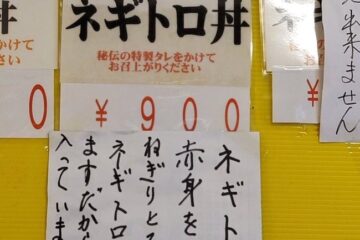 丼
0
ネギトロ丼
秘伝の特製タレをかけて
お召上がりください
¥900
ネギ
来ません
ネギト
赤身を
ねぎりと
ネギトロ
ますだから
入っていま